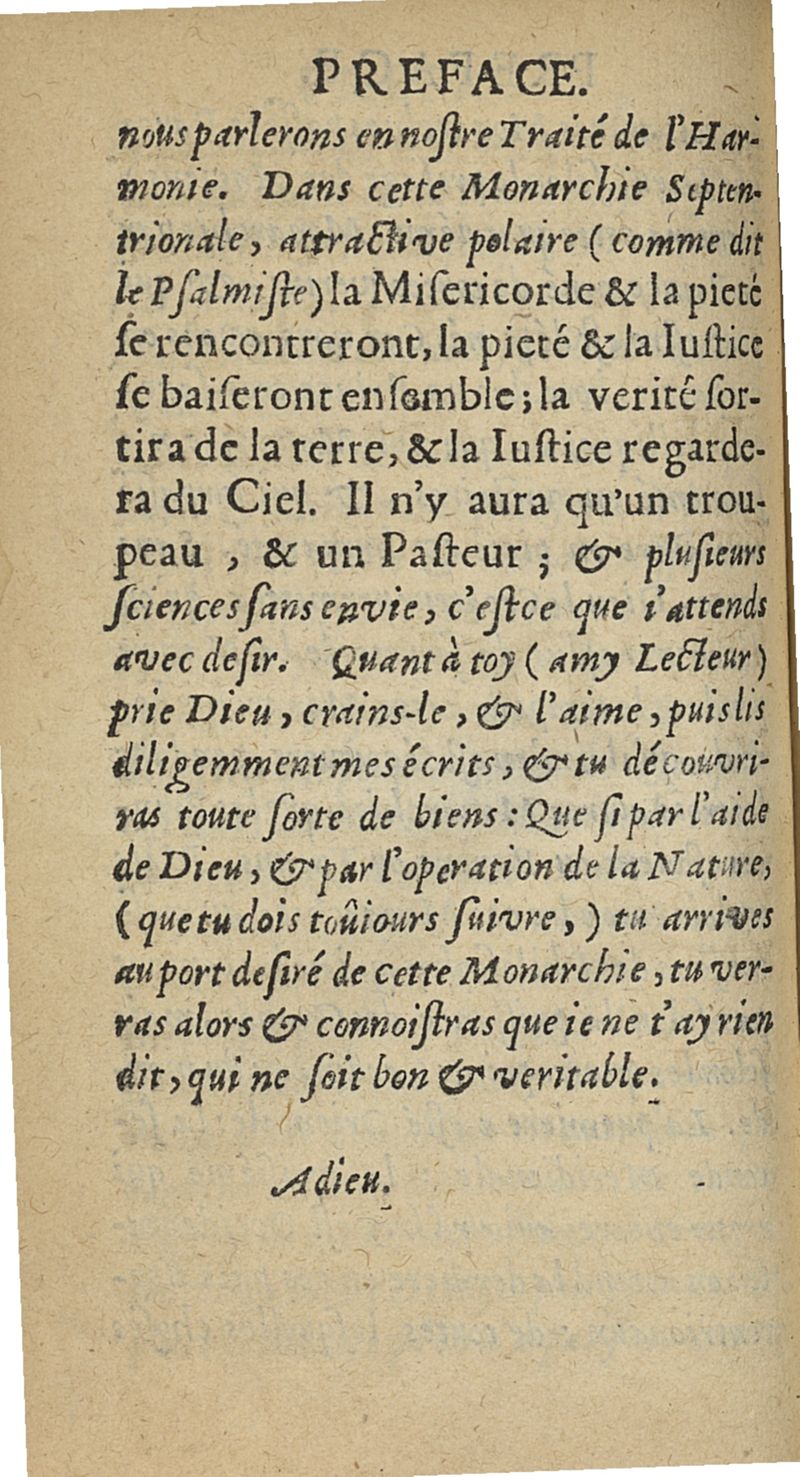 PREFACE.
nous parlerons en noſtre Traité de l'Har-
monie. Dans cette Monarchie Septen-
trionale, attractive polaire ( comme dit
le Pſalmiſte) la Miſericorde & la pieté
ſe rencontreront, la pieté & la Iuſtice
ſe baiſeront enſemble; la verité ſor-
tira de la terre, & la Iuſtice regarde-
ra du Ciel. Il n'y aura qu'un trou-
peau , & un Paſteur ; & pluſieurs
ſciences ſans envie, c'eſt ce que i'attends
avec deſir. Quant à toy ( amy Lecteur)
prie Dieu , crains-le , & l'aime , puis lis
diligemment mes écrits , & tu découvri-
ras toute ſorte de biens : Que ſi par l'aide
de Dieu , & par l'operation de la Nature,
( que tu dois toûiours ſuivre , ) tu arrives
au port deſiré de cette Monarchie , tu ver-
ras alors & connoiſtras que ie ne t'ay rien
dit , qui ne ſoit bon & veritable.
Adieu.